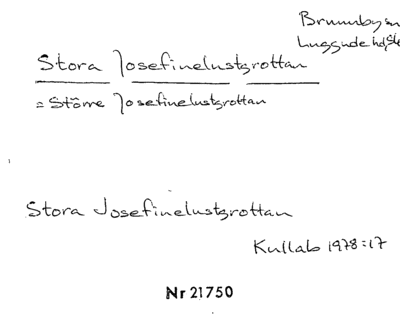 Brunnby sn
Luggude hd, Sk
Stora Josefinelustgrottan
= Större Josefinelustgrottan
Stora Josefinelustgrottan
Kullab 1978:17
Nr 21750